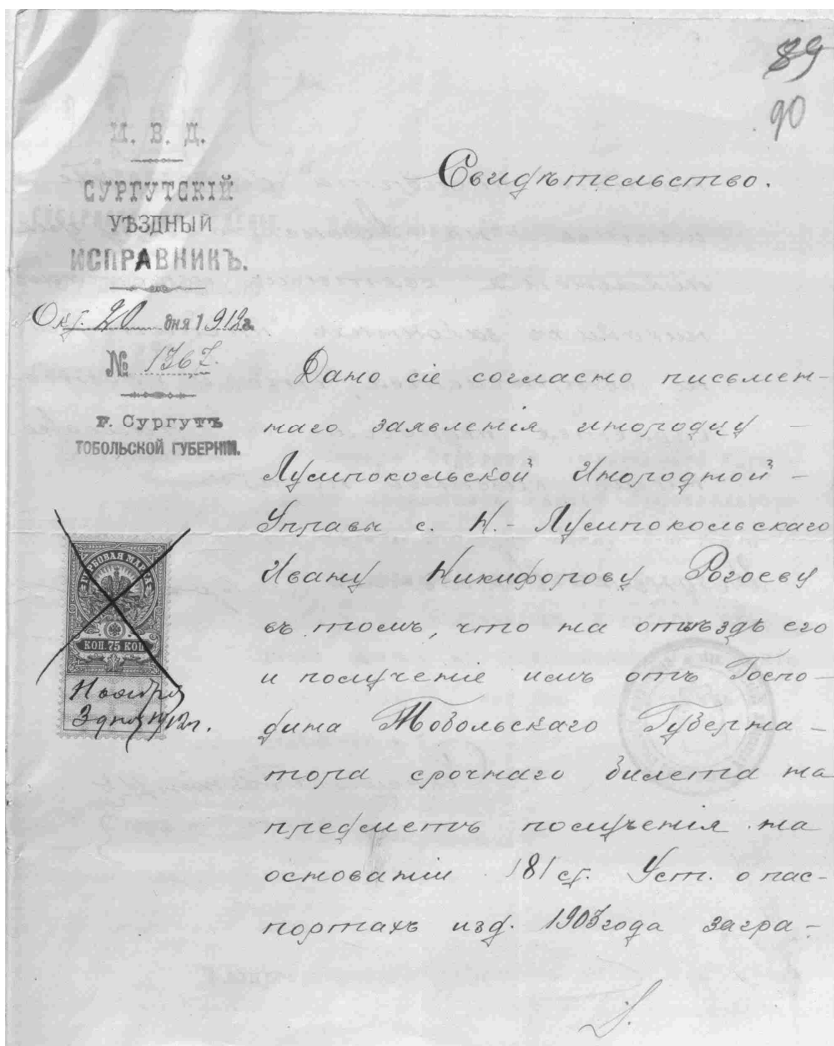 89
90
М. В. Д.
СУРГУТСКІЙ
УѢЗДНЫЙ
ИСПРАВНИКЪ.
Окт. 20 дня 1912 г.
№ 1367.
г. Сургутъ
ТОБОЛЬСКОЙ ГУБЕРНІИ.
Свидѣтельство.
Дано сіе согласно письмен-
наго заявленія инородцу -
Лумпокольской Инородной -
Управы с. Н.- Лумпокольскаго
Ивану Никифорову Рогоеву
въ томъ, что на отъѣздъ его
и полученіе имъ отъ Госпо-
дина Тобольскаго Губерна-
тора срочнаго билета на
предметъ полученія на
основаніи 181 ст. Уст. о пас-
портахъ изд. 1903 года загра-
ГЕРБОВАЯ МАРКА
КОП. 75 КОП
Ноября
3 дня 1912 г.